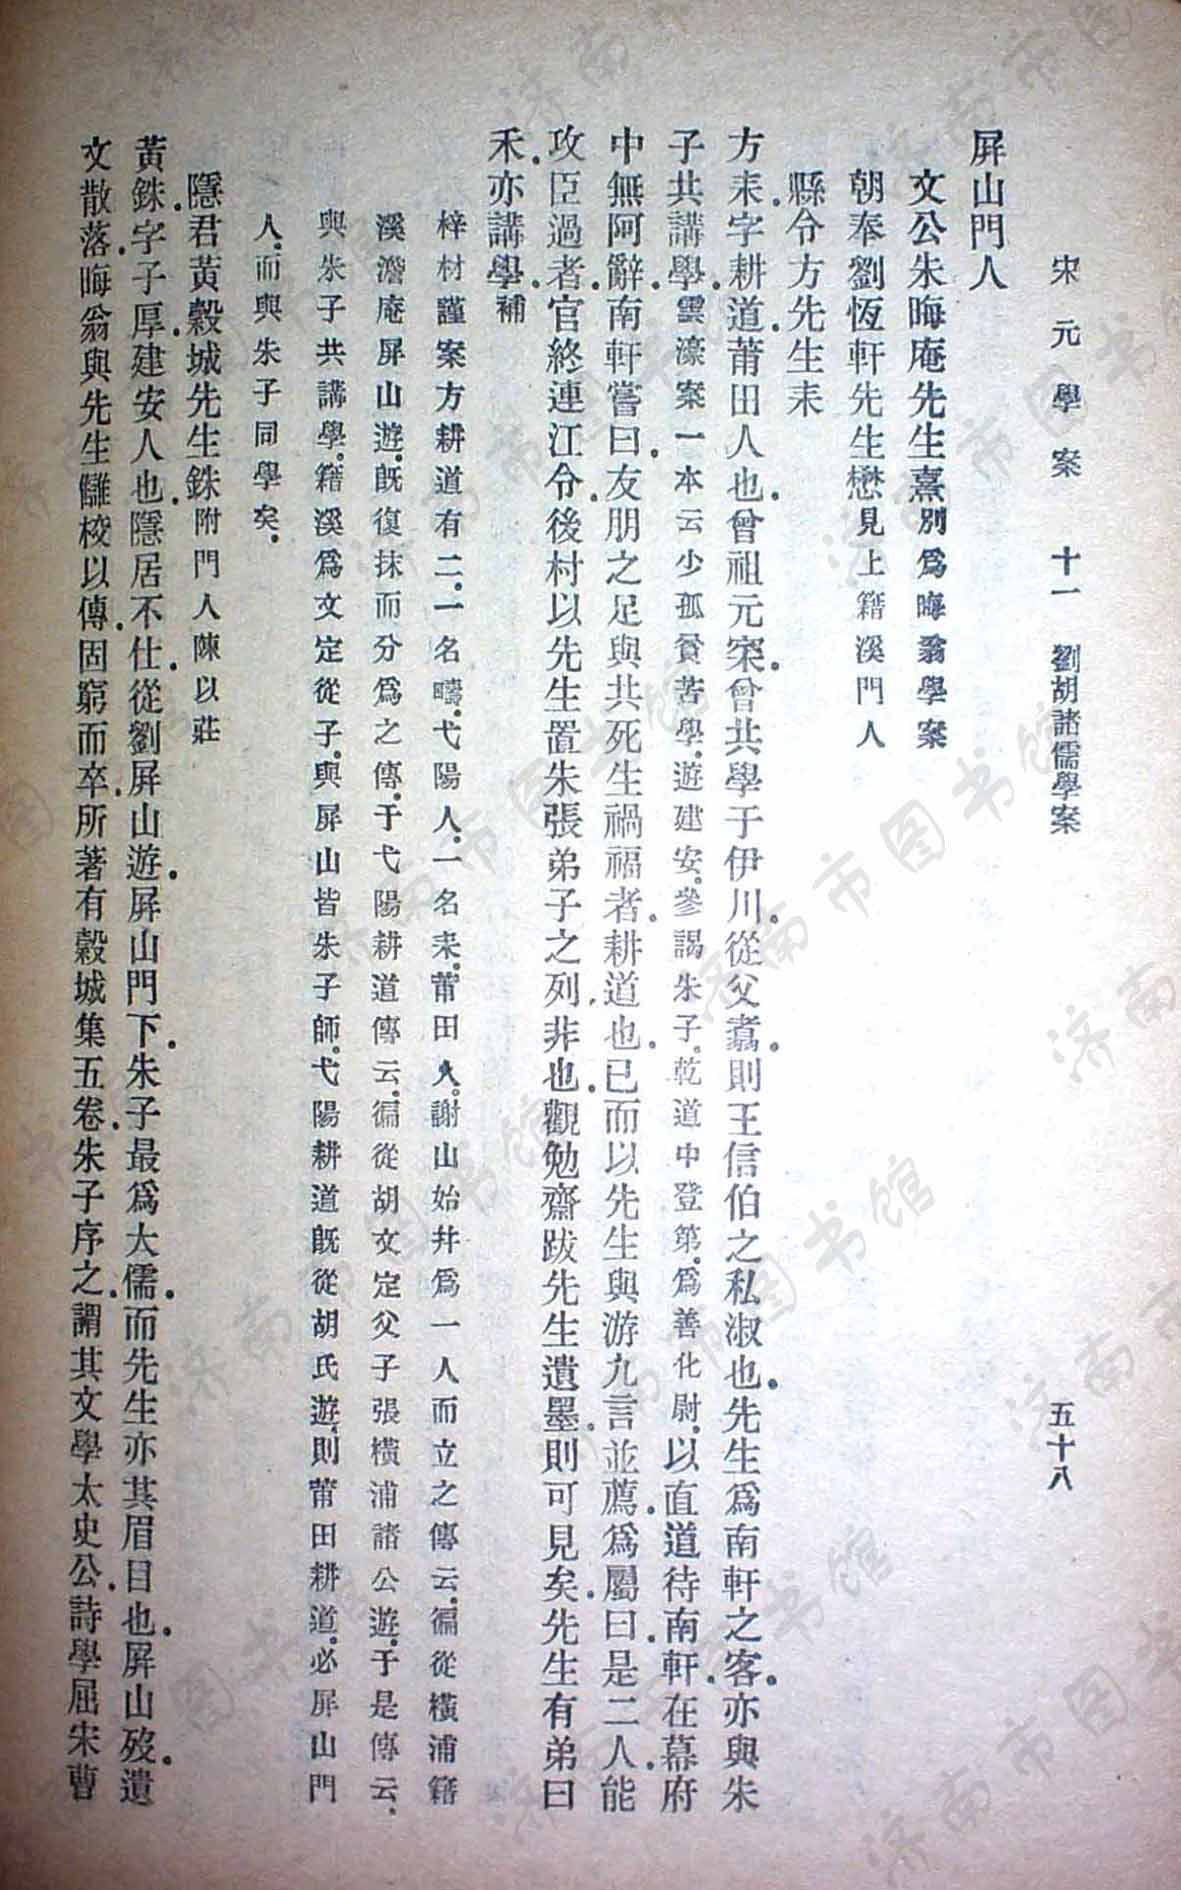 宋元學案 十一 劉胡諸儒學案 五十八
屏山門人
文公朱晦庵先生熹別爲晦翁學案
朝奉劉恆軒先生懋見上籍溪門人
縣令方先生耒
方耒字耕道莆田人也曾祖元寀曾共學于伊川從父翥則王信伯之私淑也先生爲南軒之客亦與朱
子共講學雲濠案一本云少孤貧苦學遊建安參謁朱子乾道中登第爲善化尉以直道待南軒在幕府
中無阿辭南軒嘗曰友朋之足與共死生禍福者耕道也已而以先生與游九言並薦爲屬曰是二人能
攻臣過者官終連江令後村以先生置朱張弟子之列非也觀勉齋跋先生遺墨則可見矣先生有弟曰
禾亦講學補
梓材謹案方耕道有二一名疇弋陽人一名耒莆田人謝山始幷爲一人而立之傳云徧從橫浦籍
溪澹庵屏山遊旣復抹而分爲之傳于弋陽耕道傳云徧從胡文定父子張橫浦諸公遊于是傳云
與朱子共講學籍溪爲文定從子與屏山皆朱子師弋陽耕道旣從胡氏遊則莆田耕道必屏山門
人而與朱子同學矣
隱君黃穀城先生銖附門人陳以莊
黃銖字子厚建安人也隱居不仕從劉屏山遊屏山門下朱子最爲大儒而先生亦其眉目也屏山歿遺
文散落晦翁與先生讎校以傳固窮而卒所著有穀城集五卷朱子序之謂其文學太史公詩學屈宋曹
濟南市图书馆